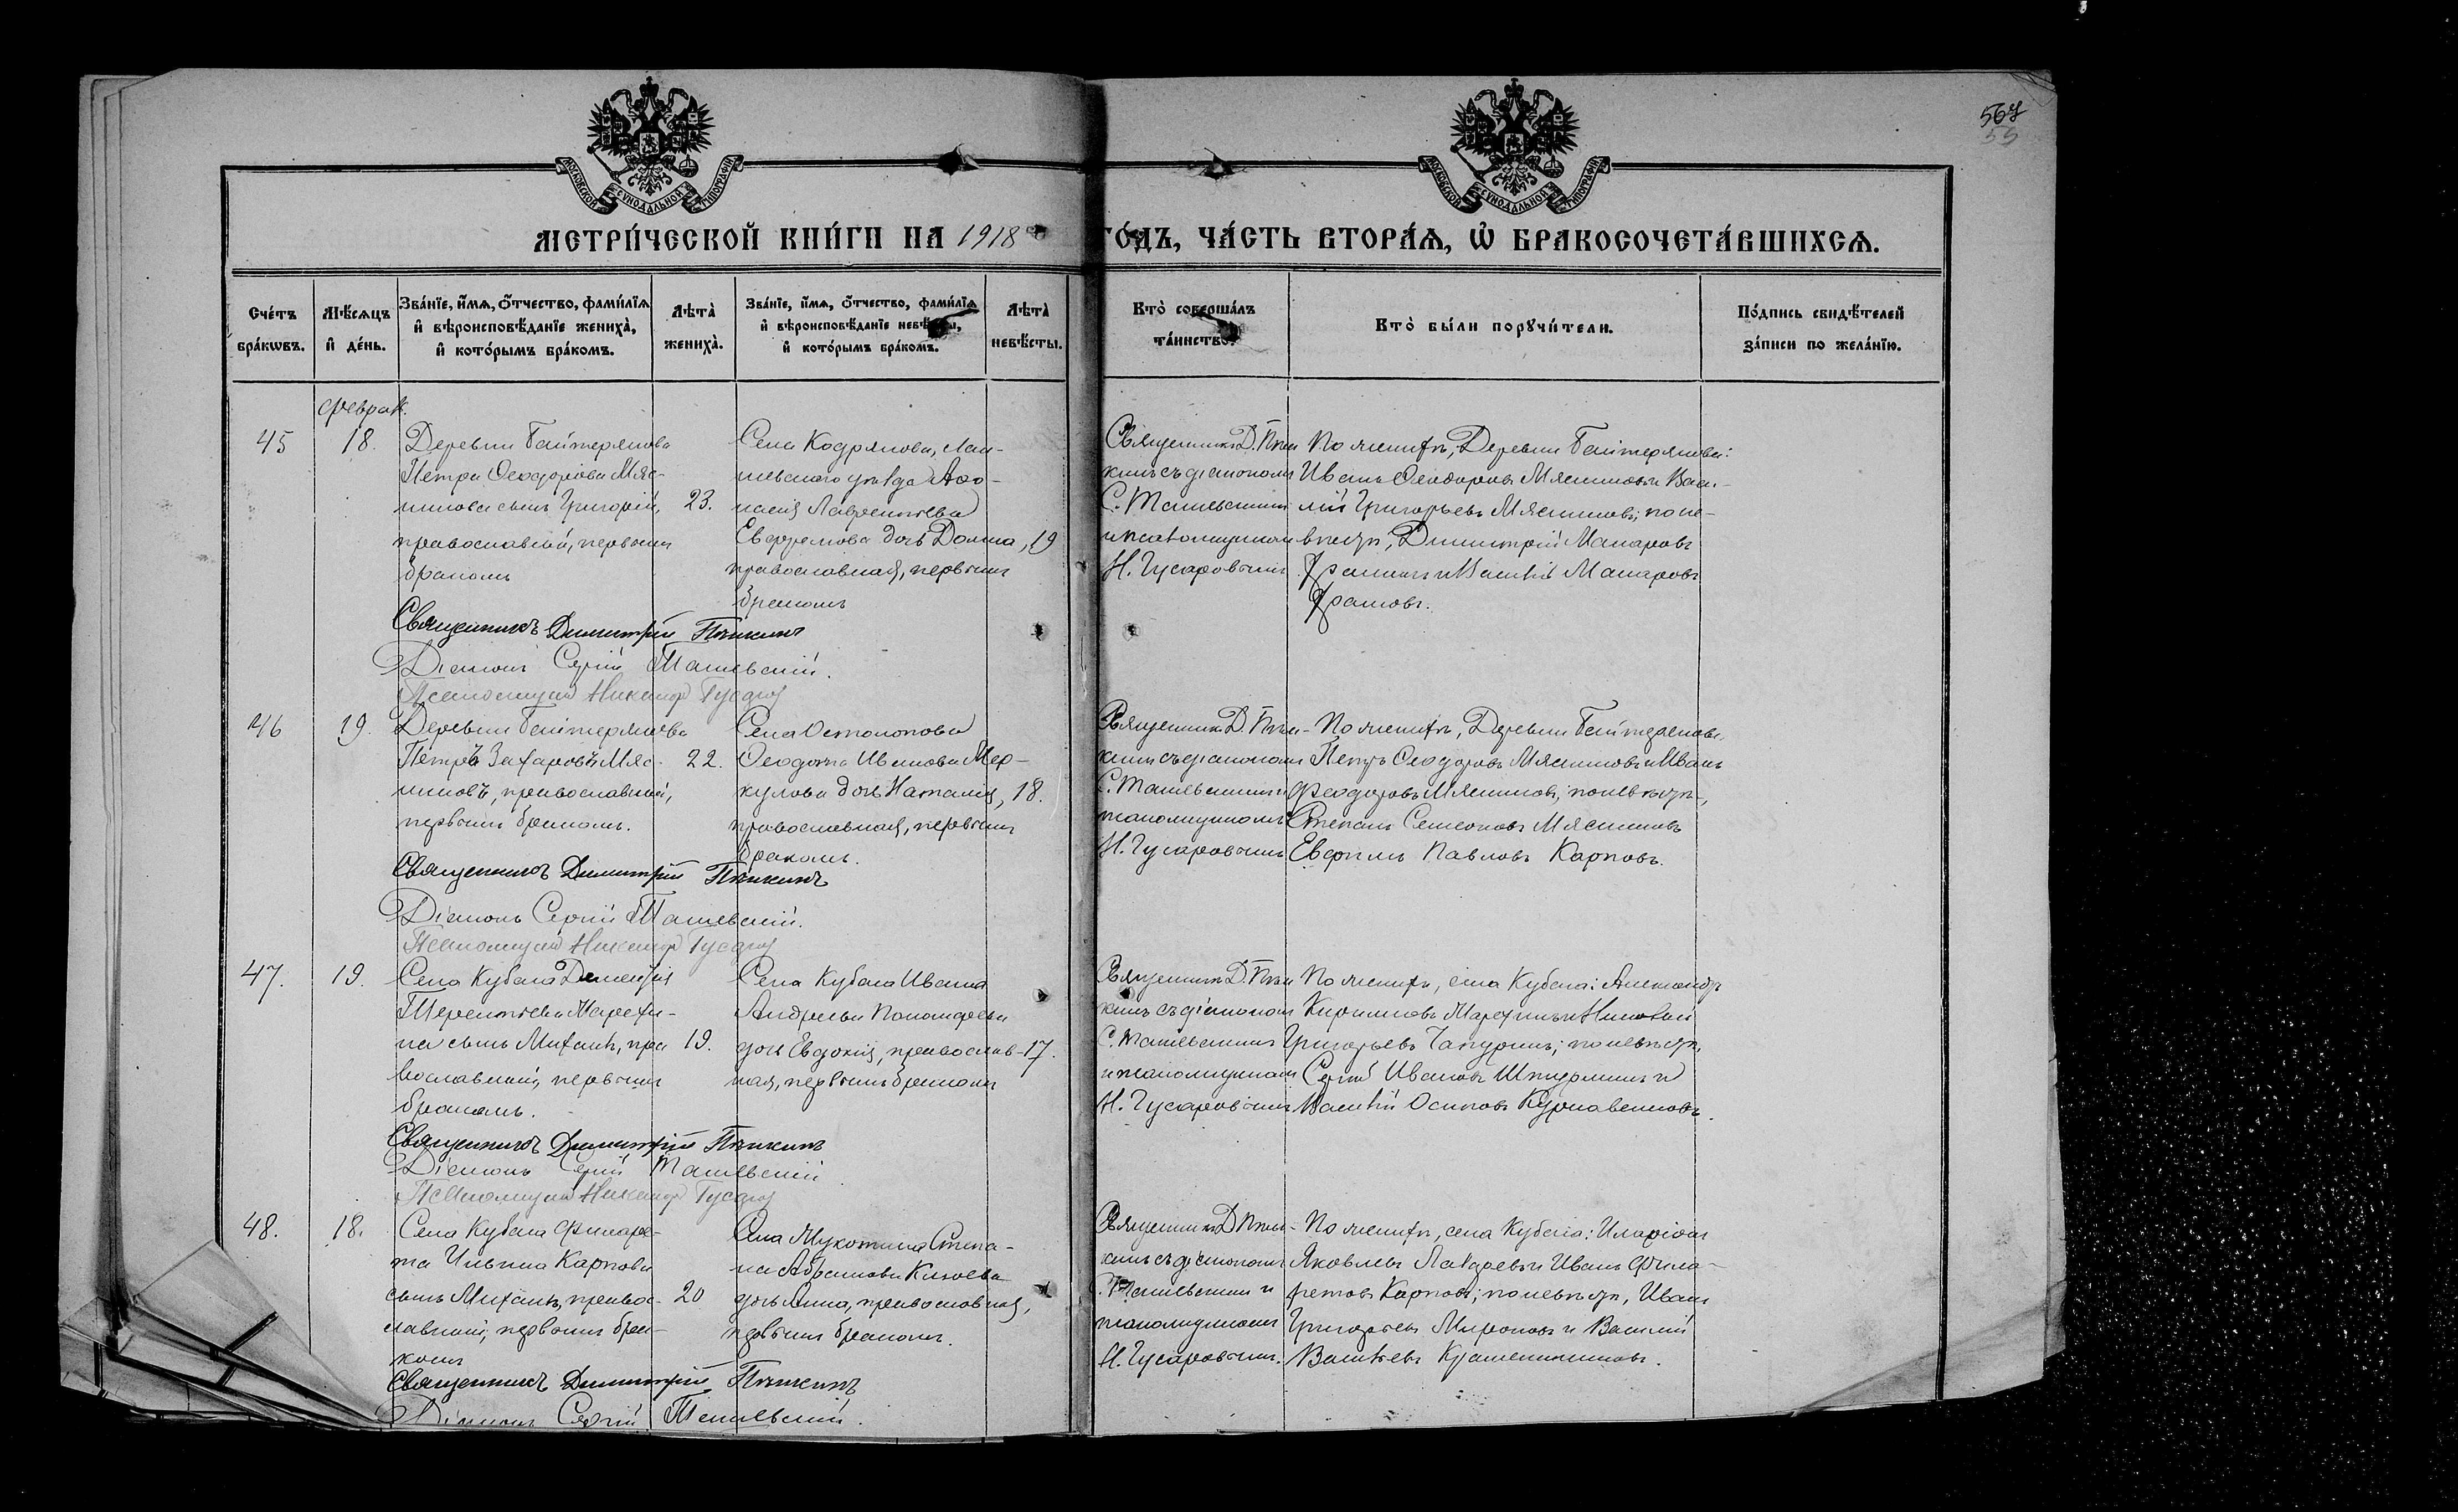 567
55
МОСКОВСКОЙ СѴНОДАЛЬНОЙ ТИПОГРАФІИ
МОСКОВСКОЙ СѴНОДАЛЬНОЙ ТИПОГРАФІИ
МЕТРИ́ЧЕСКОЙ КНИ́ГИ НА 1918 ГО́ДЪ, ЧА́СТЬ ВТОРА́Ѧ, Ѽ БРАКОСОЧЕТА́ВШИХСѦ.
Сче́тъ бра́кѡвъ.
Мѣ́сѧцъ и҆ де́нь.
Зва́нїе, и҆́мѧ, ѻ҆́тчество, фами́лїѧ
и҆ вѣроисповѣ́данїе жениха̀,
и҆ кото́рымъ бра́комъ.
Лѣта̀ жениха̀.
Зва́нїе, и҆́мѧ, ѻ҆́тчество, фами́лїѧ
и҆ вѣроисповѣ́данїе невѣ́сты,
и҆ кото́рымъ бра́комъ.
Лѣта̀ невѣ́сты.
Кто̀ соверша́лъ та́инство.
Кто̀ бы́ли порꙋчи́тели.
По́дпись свидѣ́телей
за́писи по жела́нїю.
Феврал.
45
18.
Деревни Байтерякова
Петра Ѳеодорова Мяс-
никова сынъ Григорій,
православный, первымъ
бракомъ
23.
Села Кодрякова, Лаи-
шевскаго уѣзда
Лаврентьева
Ефремова дочь Домна,
православная, первымъ
бракомъ
19
Священникъ Д. Пѣш-
кинъ съ діакономъ
С. Ташевскимъ
и псаломщикомъ
Н. Гусаровымъ
По женихѣ, Деревни Байтерякова:
Иванъ Ѳеодоровъ Мясниковъ и Васи-
лій Григорьевъ Мясниковъ; по не-
вѣстѣ, Димитрій Макаровъ
и Василій Макаровъ
Священникъ Димитрій Пѣшкинъ
Діаконъ Сергій Ташевскій.
Псаломщикъ Никаноръ Гусаров
46
19.
Деревни Байтерякова
Петръ Захаровъ Мяс-
никовъ, православный,
первымъ бракомъ.
22.
Села Остолопова
Ѳеодота Иванова Мер-
кулова дочь Наталія,
православная, первымъ
бракомъ.
18.
Священникъ Д. Пѣш-
кинъ съ діакономъ
С. Ташевскимъ и
псаломщикомъ
Н. Гусаровымъ
По женихѣ, Деревни Байтерякова
Петръ Ѳеодоровъ Мясниковъ и Иванъ
Феодоровъ Мясниковъ; по невѣстѣ,
Степанъ Семеоновъ Мясниковъ
Евфимъ Павловъ Карповъ.
Священникъ Димитрій Пѣшкинъ
Діаконъ Сергій Ташевскій.
Псаломщикъ Никаноръ Гусаров
47.
19.
Села Кубаса Дементія
Терентьева Марефи-
на сынъ Михаилъ, пра
вославный, первымъ
бракомъ.
19.
Села Кубаса Ивана
Андреева Пономарева
дочь Евдокія, православ-
ная, первымъ бракомъ
17.
Священникъ Д. Пѣш
кинъ съ діакономъ
С. Ташевскимъ
и псаломщикомъ
Н. Гусаровымъ
По женихѣ, села Кубаса: Александръ
Кирилловъ и Николай
Григорьевъ Чапуринъ; по невѣстѣ,
Сергій Ивановъ и
Василій Осиповъ
Священникъ Димитрій Пѣшкинъ
Діаконъ Сергій Ташевскій
Псаломщикъ Никаноръ Гусаров
48.
18.
Села Кубаса Филаре-
та Ильина Карпова
сынъ Михаилъ, правос-
лавный, первымъ бра-
комъ
20
Села Степа-
на Абрамова Князева
дочь Анна, православная,
первымъ бракомъ.
Священникъ Д Пѣш-
кинъ съ діакономъ
С. Ташевскимъ и
псаломщикомъ
Н. Гусаровымъ.
По женихѣ, села Кубаса: Иларіонъ
Яковлевъ Лазаревъ и Иванъ Фила-
ретовъ Карповъ; по невѣстѣ, Иванъ
Григорьевъ Мироновъ и Василій
Васильевъ Крашенинниковъ.
Священникъ Димитрій Пѣшкинъ
Діаконъ Сергій Ташевскій.